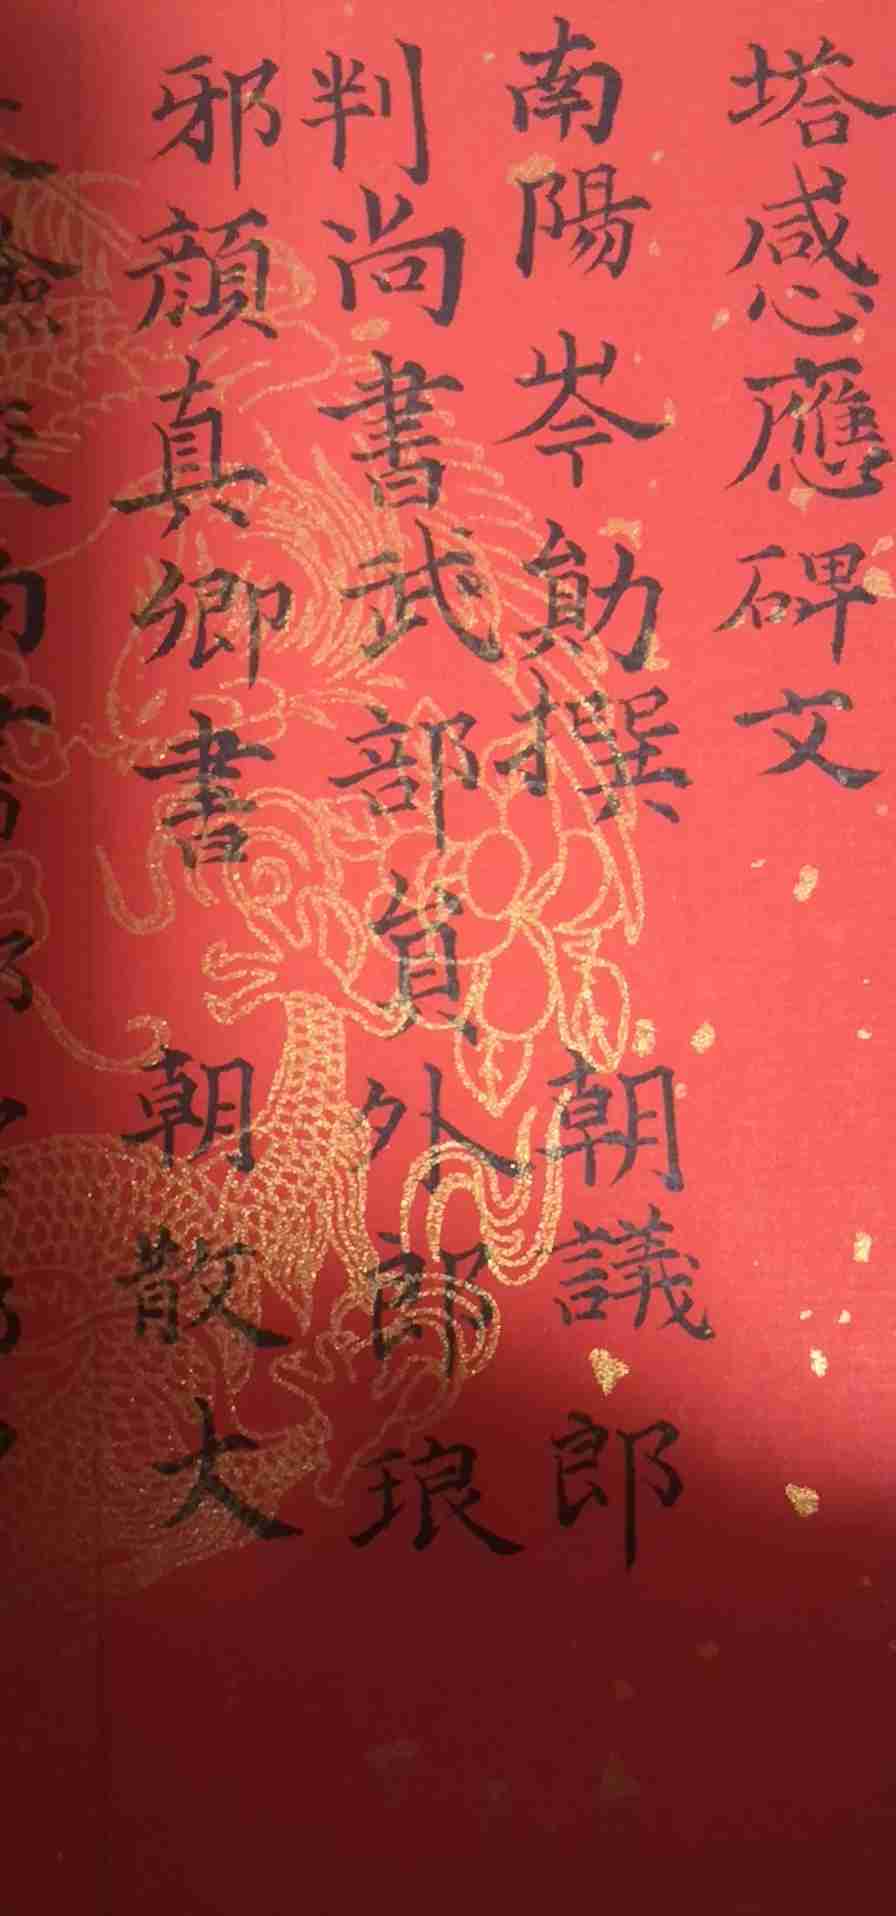 塔感應碑文
南陽岑勛撰 朝議郎
判尚書武部員外郎琅
邪顔真卿書 朝散大